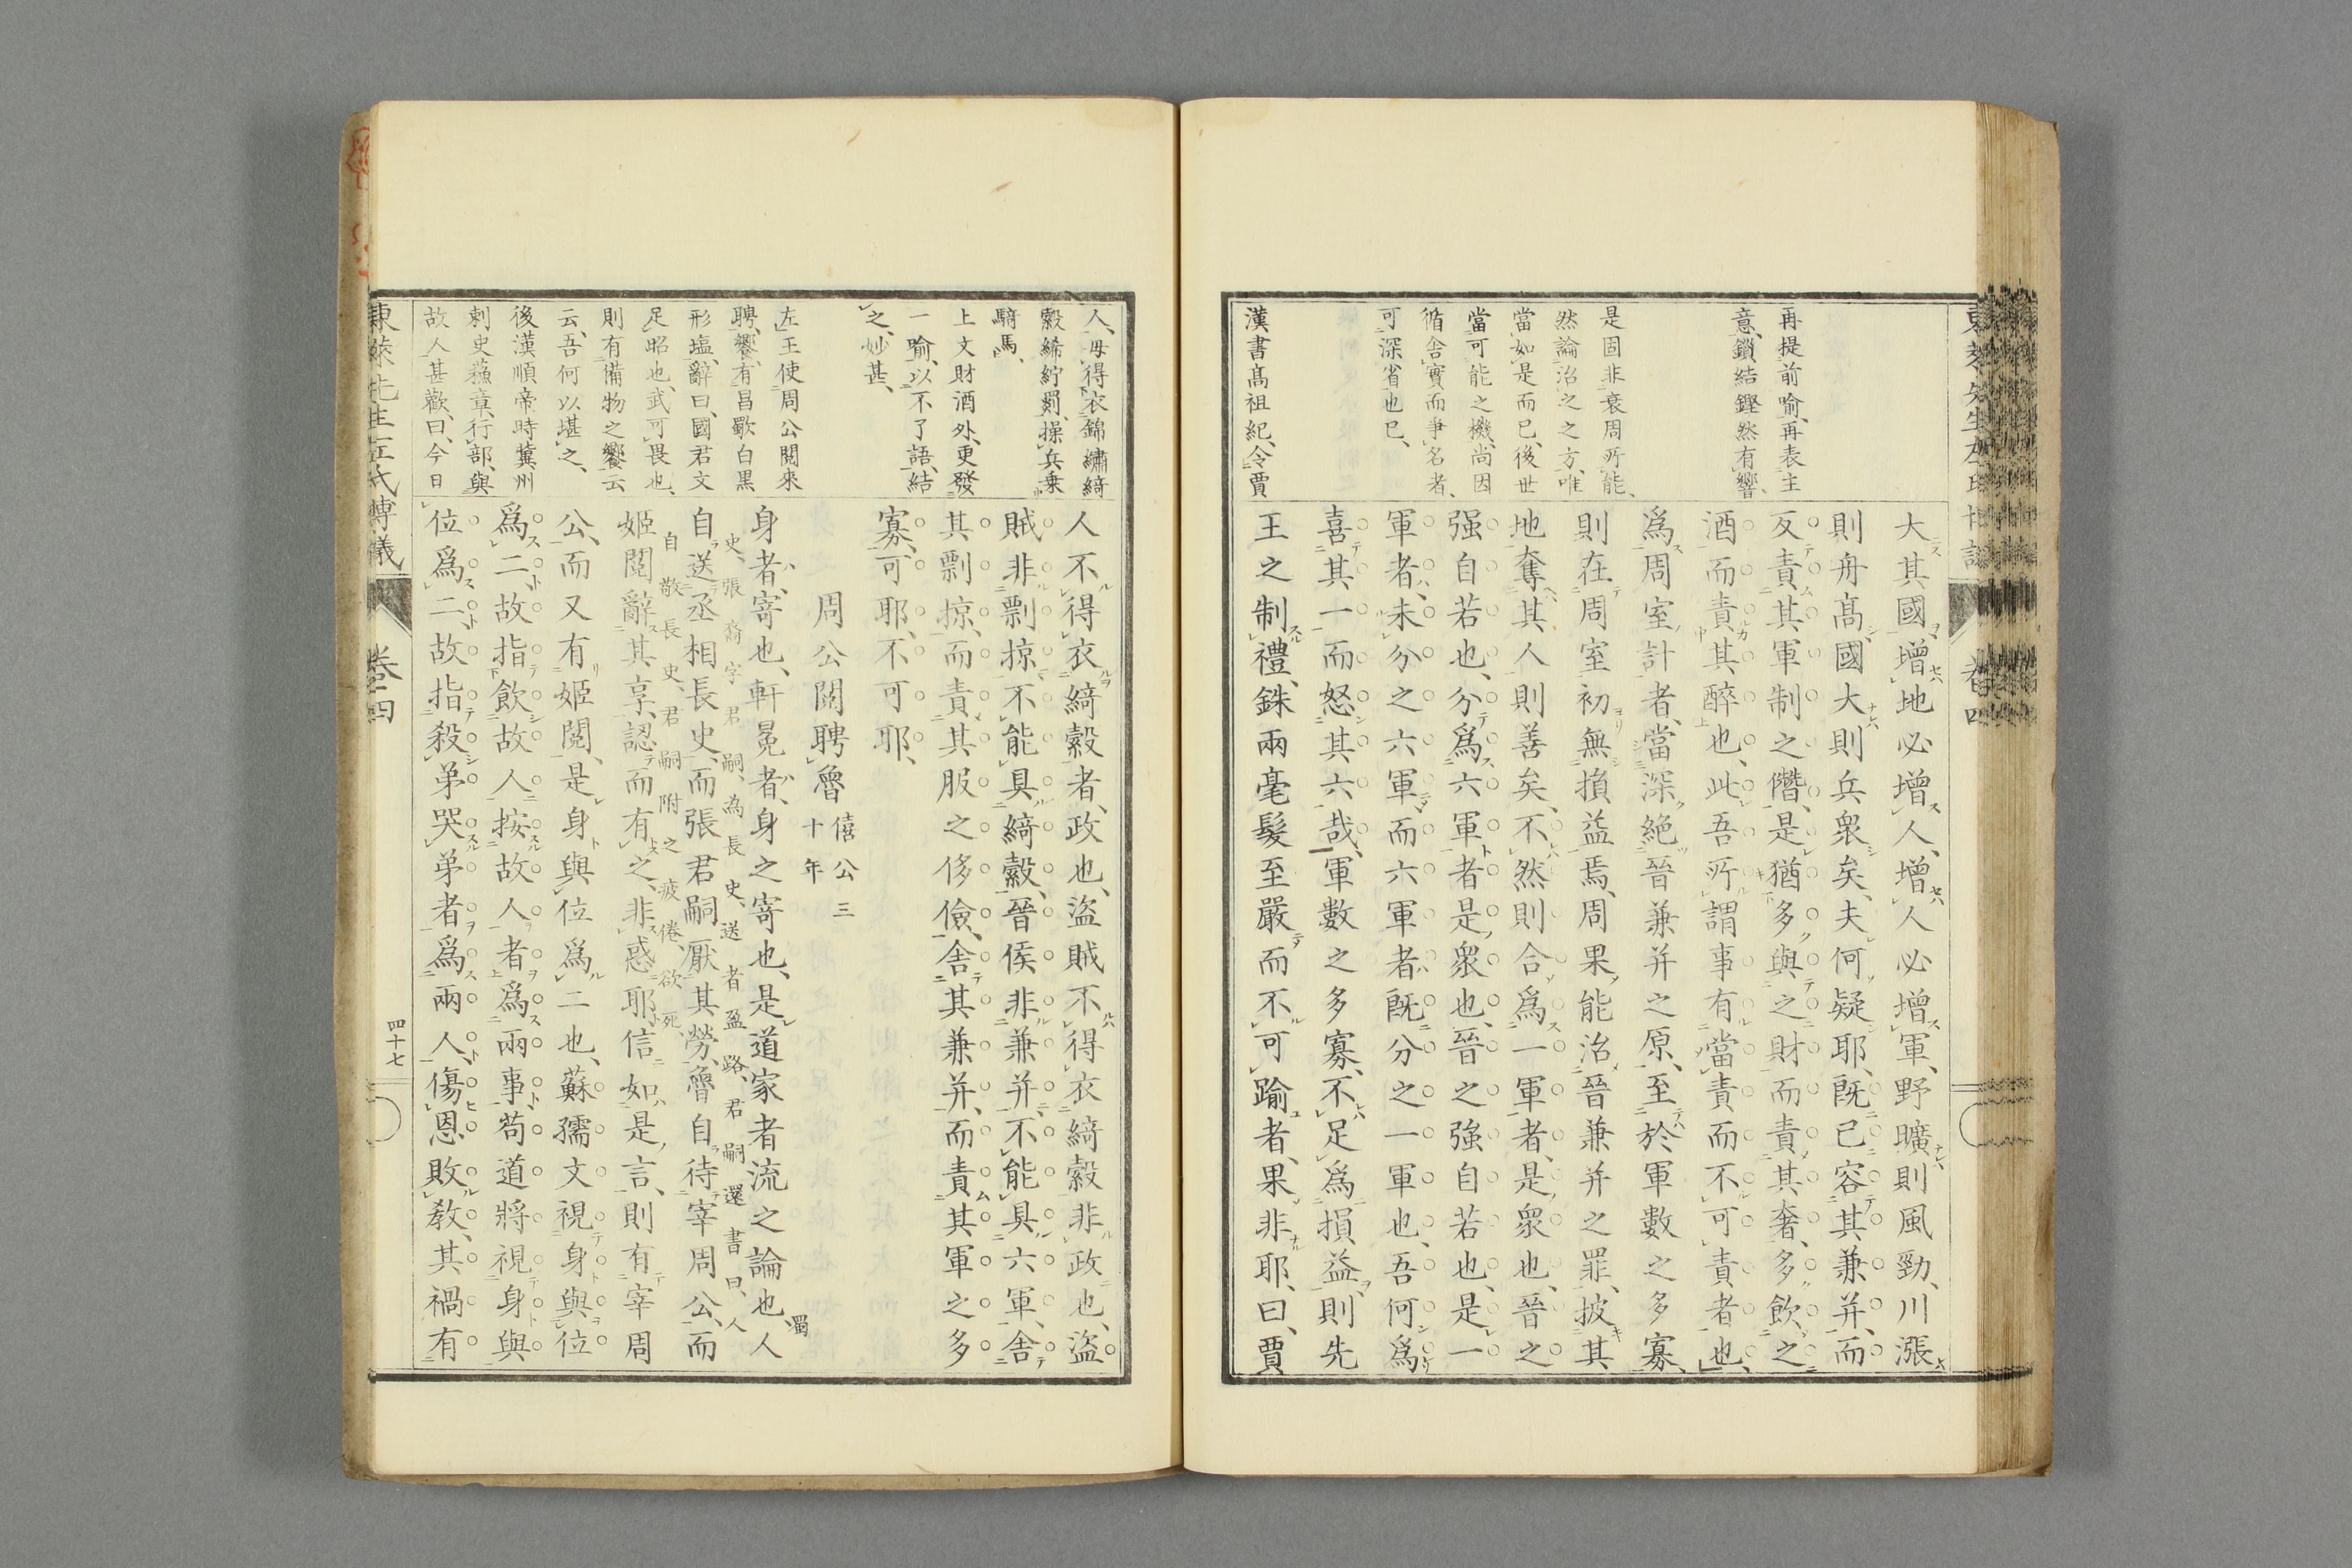 再提前喻、再表主
意、鎖結鏗然有響、
是固非衰周所能、
然論治之之方、唯
當如是而已、後世
當可能之機、尚因
循舍實而爭名者、
可深省也已、
漢書高祖紀、令賈
大其國、增地必增人、增人必增軍、野曠則風勁、川漲
則舟高、國大則兵衆矣、夫何疑耶、既已容其兼并、而
反責其軍制之僭、是猶多與之財而責其奢、多飲之
酒而責其醉也、此吾所謂事有當責而不可責者也、
爲周室計者、當深絶晉兼并之原、至於軍數之多寡、
則在周室初無損益焉、周果能治晉兼并之罪、披其
地奪其人則善矣、不然則合爲一軍者、是衆也、晉之
强自若也、分爲六軍者是衆也、晉之强自若也、是一
軍者、未分之六軍、而六軍者、既分之一軍也、吾何爲
喜其一而怒其六哉、軍數之多寡、不足爲損益、則先
王之制禮、銖兩毫髮至嚴而不可踰者、果非耶、曰、賈
人、毋得衣錦繡綺
縠絺紵罽、操兵乗
騎馬、
上文財酒外、更發
一喻、以不了語、結
之、妙甚、
左王使周公閱來
聘、饗、有昌歜白黒
形塩、辭曰、國君文
足昭也、武可畏也、
則有備物之饗云
云、吾何以堪之、
後漢順帝時冀州
刺史蘇章、行部、與
故人甚歡、曰、今日
人不得衣綺縠者、政也、盜賊不得衣綺縠非政也、盜
賊非剽掠、不能具綺縠、晉侯非兼并、不能具六軍、舍
其剽掠、而責其服之侈儉、舍其兼并、而責其軍之多
寡、可耶、不可耶、
周公閱聘魯 僖公三十年
身者、寄也、軒冕者、身之寄也、是道家者流之論也、人
史、張裔字君嗣、為長史、送者盈路、君嗣還書曰、人
自送丞相長史、而張君嗣厭其勞、魯自待宰周公、而
自敬長史、君嗣附之疲倦、欲死、
姬閱辭其享、認而有之、非惑耶、信如是言、則有宰周
公、而又有姬閱、是身與位爲二也、蘇孺文視身與位
爲二、故指飲故人按故人者爲兩事、苟道將視身與
位爲二、故指殺弟哭弟者爲兩人、傷恩敗教、其禍有
東萊先生左氏博議
卷四
四十七